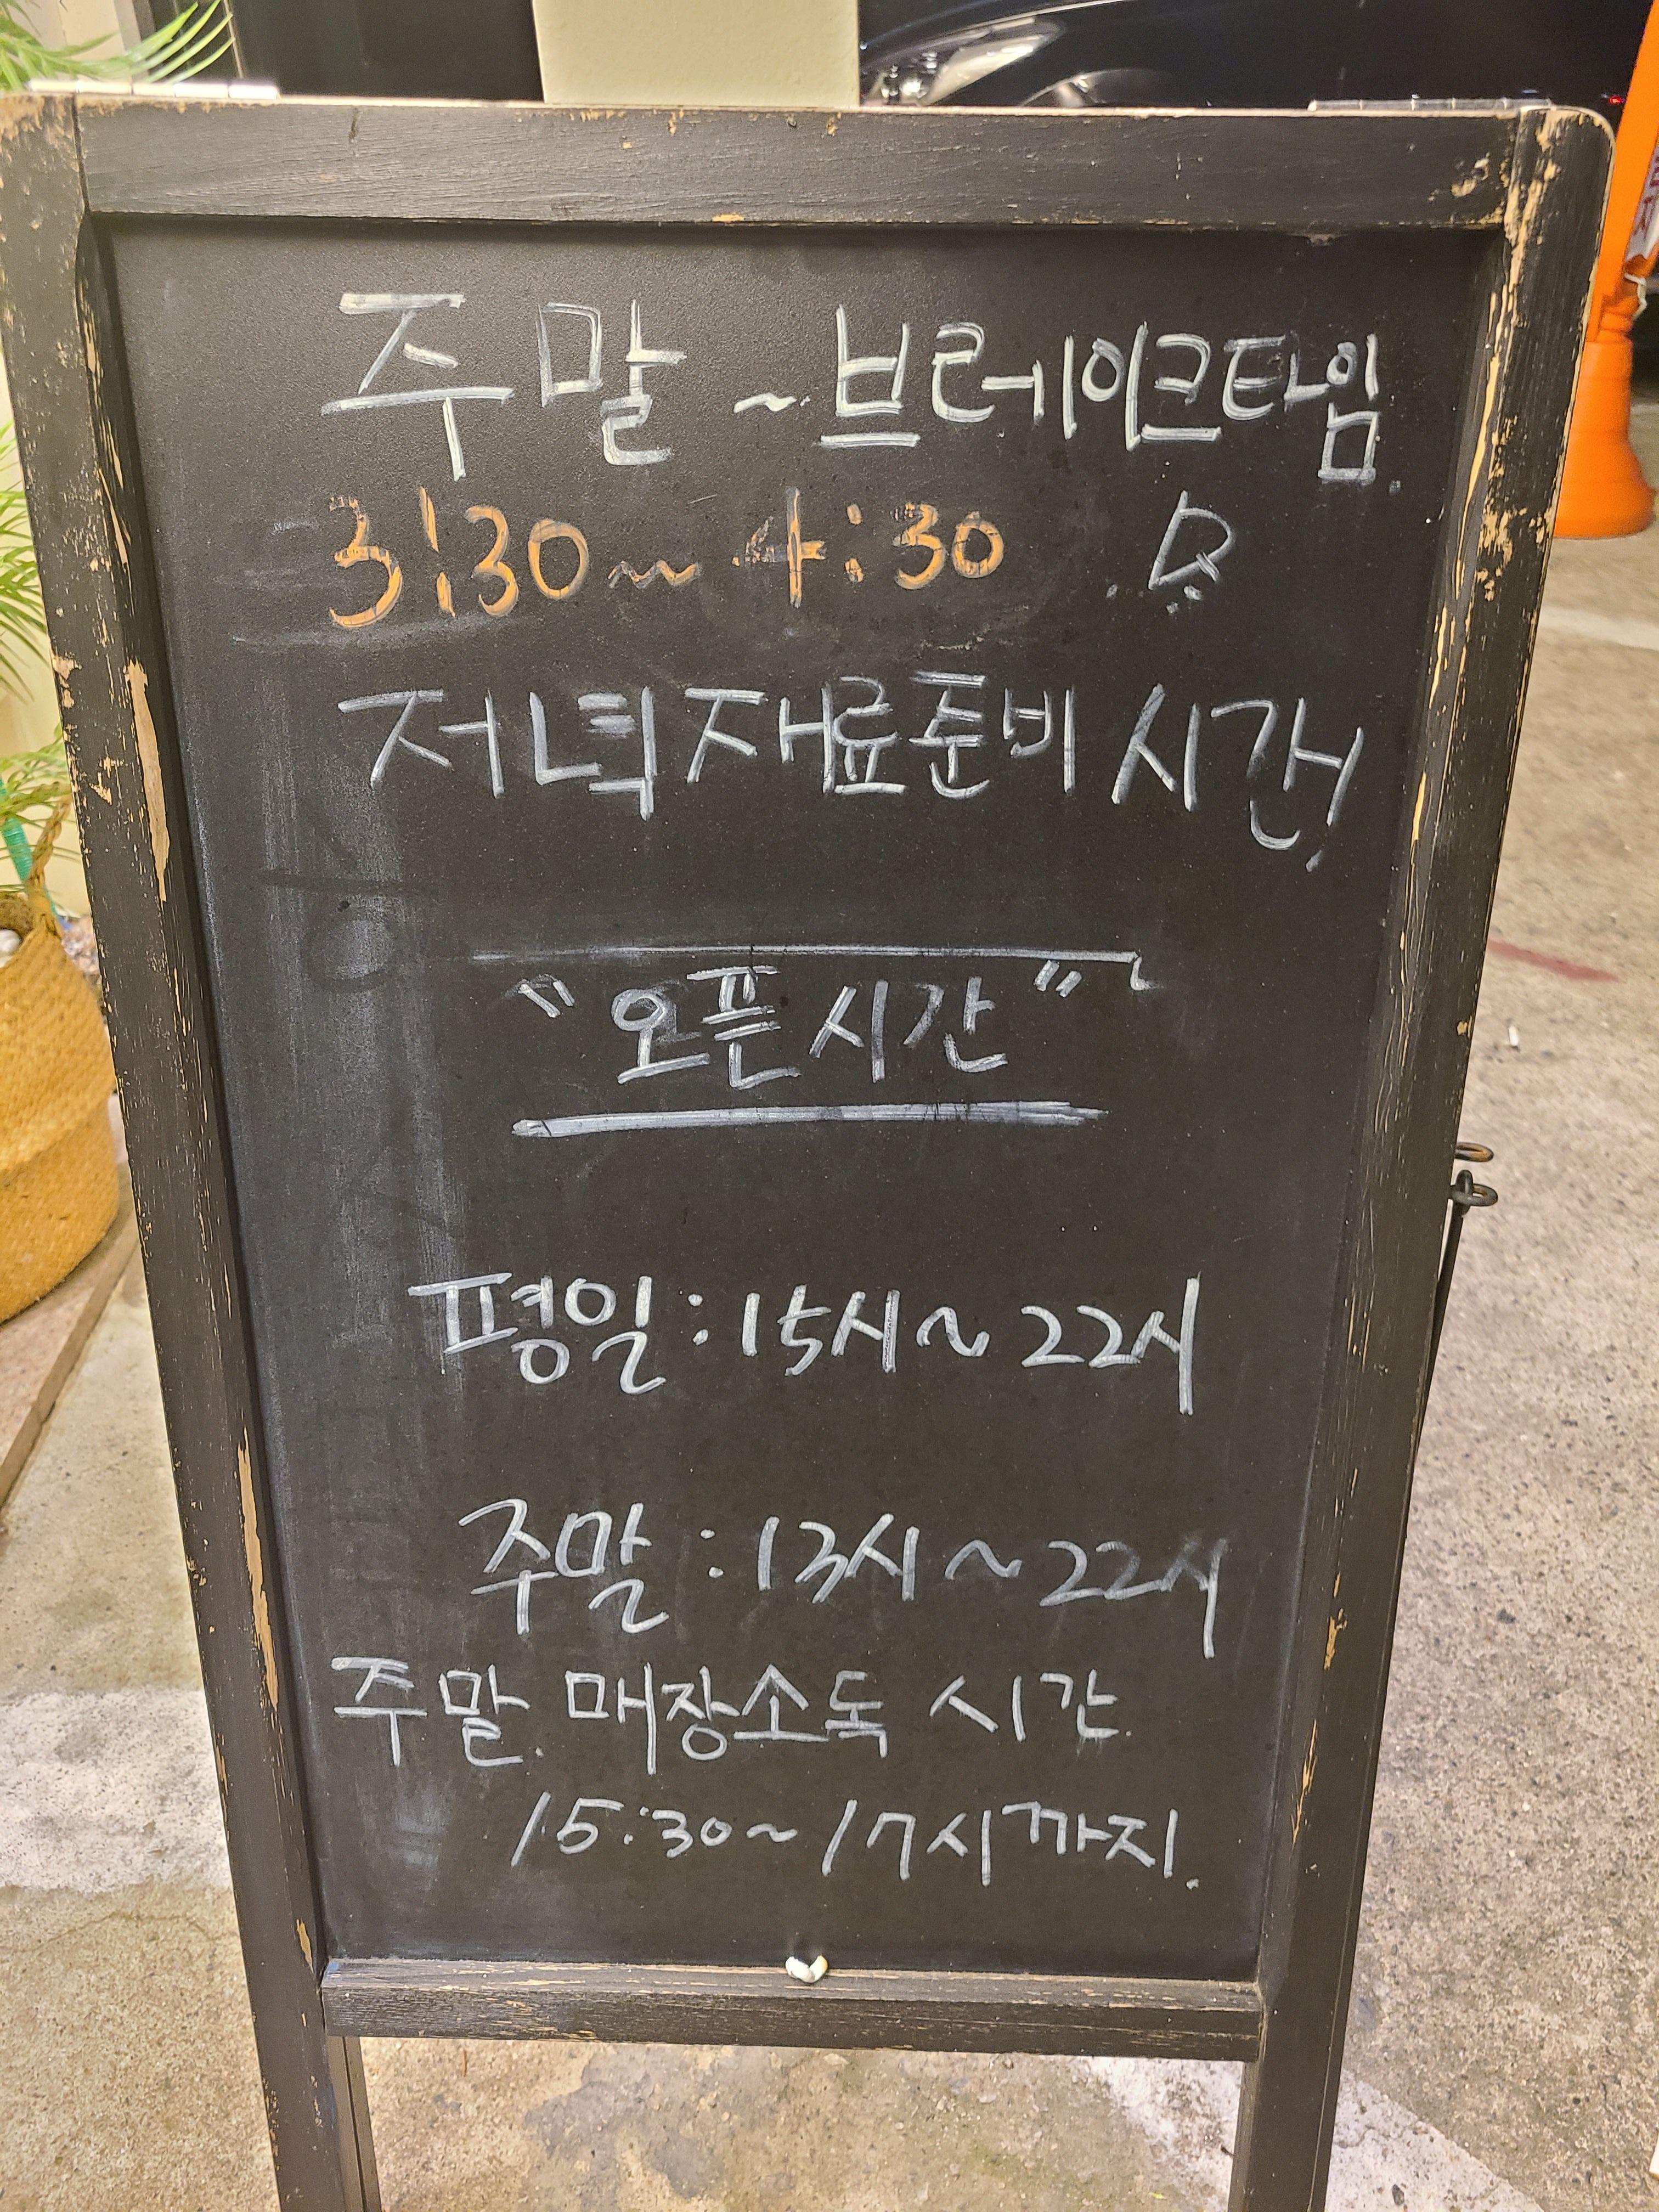 주말 ~브레이크타임.
3:30~ 4:30
저녁재료준비 시간!
"오픈시간"
평일:15시~22시
주말:13시~22시
주말. 매장소독 시간.
15:30~17시까지.